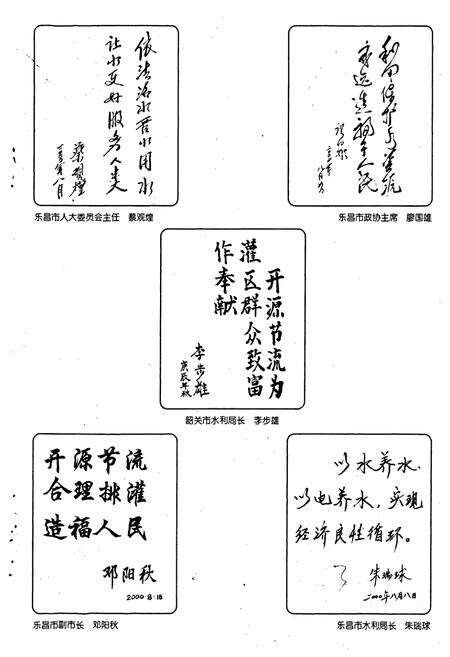 依法治水管水用水
让水更好服务人类
蔡观煌
二000年八月
乐昌市人大委员会主任 蔡观煌
永远造福于人民
乐昌市政协主席 廖国雄
开源节流为
灌区群众致富
作奉献
李步雄
庚辰年秋
韶关市水利局长 李步雄
开源节流
合理排灌
造福人民
邓阳秋
2000·8·18
乐昌市副市长 邓阳秋
以水养水，
以电养水，实现
经济良性循环。
朱瑞球
二000年八月八日
乐昌市水利局长 朱瑞球